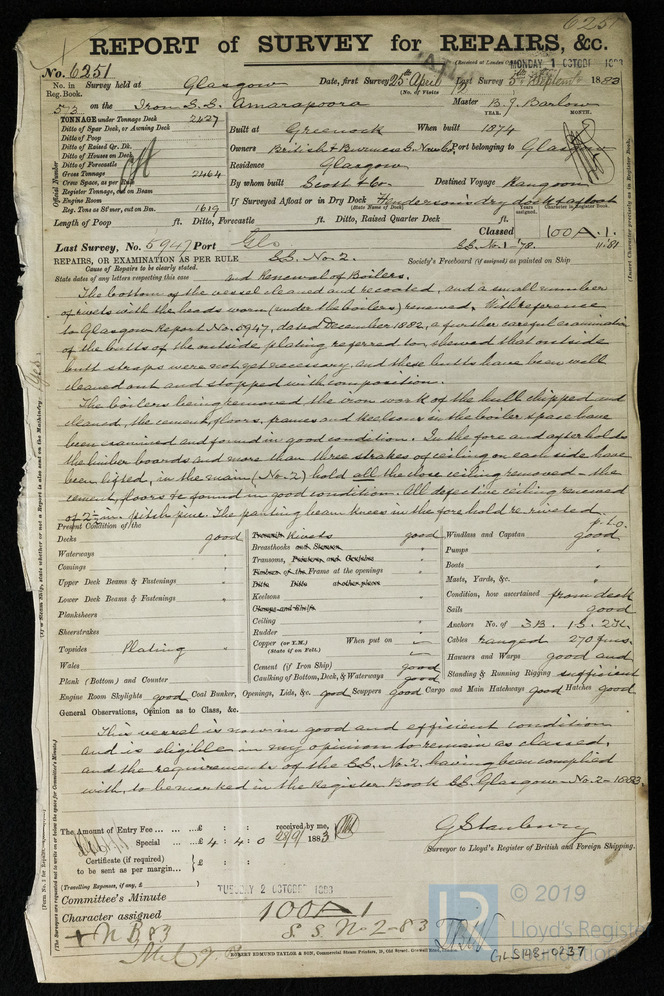 6251
REPORT of SURVEY for REPAIRS, &c.
No. 6251
(Received at London
MONDAY 1 OCTOBER 1883
No. in Reg. Book.
Survey held at Glasgow
Date, first Survey 25 April
Last Survey 5th September 1883
(No. of Visits
573 on the Iron S.S. Amarapoora
Master B. J. Barlow
TONNAGE under Tonnage Deck 2427
Ditto of Spar Deck, or Awning Deck
Ditto of Poop
Ditto of Raised Qr. Dk.
Ditto of Houses on Deck
Ditto of Forecastle
Gross Tonnage 2464
Crew Space, as per Rule
Register Tonnage, cut on Beam
Engine Room
Reg. Tons as St'mer, cut on Bm. 1619
Official Number
Built at Greenock When built 1874
YEAR. MONTH.
Owners British & Burmese S. Nav. Co. Port belonging to Glasgow
Residence Glasgow
By whom built Scott & Co. Destined Voyage Rangoon
If Surveyed Afloat or in Dry Dock Henderson's dry dock & afloat
(State Name of Dock)
Years assigned. Character in Register Book.
Length of Poop ft. Ditto, Forecastle ft. Ditto, Raised Quarter Deck ft.
Classed 100 A. 1.
Last Survey, No. 5947 Port Glo
SS. No. 1-78. 11.81
REPAIRS, OR EXAMINATION AS PER RULE S.S. No. 2.
Society's Freeboard (if assigned) as painted on Ship
Cause of Repairs to be clearly stated.
State dates of any letters respecting this case and Renewal of Boilers.
The bottom of the vessel cleaned and recoated, and a small number
of rivets with the heads worn (under the boilers) renewed. With reference
to Glasgow Report No. 5947, dated December 1882, a further careful examination
of the butts of the outside plating referred to, shewed that outside
butt straps were not yet necessary, and these butts have been well
cleaned out and stopped with composition.
The boilers being removed the iron work of the hull chipped and
cleaned, the cement, floors, frames and keelsons in the boiler space have
been examined and found in good condition. In the fore and after holds
the limber boards and more than three strakes of ceiling on each side have
been lifted, in the main (No. 2) hold all the close ceiling removed - the
cement, floors &c found in good condition. All defective ceiling renewed
of 2½ in. pitch pine. The panting beam knees in the fore hold re-riveted.
p.t.o.
Present Condition of the
Decks good
Waterways "
Comings "
Upper Deck Beams & Fastenings "
Lower Deck Beams & Fastenings "
Planksheers
Sheerstrakes "
Topsides Plating "
Wales
Plank (Bottom) and Counter
Treenails Rivets good
Breasthooks and Stemson "
Transoms, Pointers, and Crutches "
Timbers of the Frame at the openings "
Ditto Ditto at other places
Keelsons "
Clamps and Shelfs
Ceiling "
Rudder "
Copper (or Y.M.) When put on
(State if on Felt.)
Cement (if Iron Ship) good
Caulking of Bottom, Deck, & Waterways good
Windlass and Capstan good
Pumps "
Boats "
Masts, Yards, &c. "
Condition, how ascertained from deck
Sails good
Anchors No. of 3 B. 1 S. 2 K.
Cables ranged 270 fms.
Hawsers and Warps good and
Standing & Running Rigging sufficient
Engine Room Skylights good Coal Bunker, Openings, Lids, &c. good Scuppers good Cargo and Main Hatchways good Hatches good
General Observations, Opinion as to Class, &c.
This vessel is now in good and efficient condition
and is eligible in my opinion to remain as classed,
and the requirements of the S.S. No. 2. having been complied
with, to be marked in the Register Book SS. Glasgow - No. 2 - 1883.
The Amount of Entry Fee £ : :
Special £ 4 : 4 : 0
received by me,
29/9/ 1883
Certificate (if required) to be sent as per margin £ : :
(Travelling Expenses, if any, £ )
G Stanbury
Surveyor to Lloyd's Register of British and Foreign Shipping.
Committee's Minute TUESDAY 2 OCTOBER 1883
Character assigned 100 A 1
+ N B 83 S. S. No 2-83
ROBERT EDMUND TAYLOR & SON, Commercial Steam Printers, 19, Old Street, Goswell Road, London.
GLS148-0237
© 2019
Lloyd's Register
Foundation